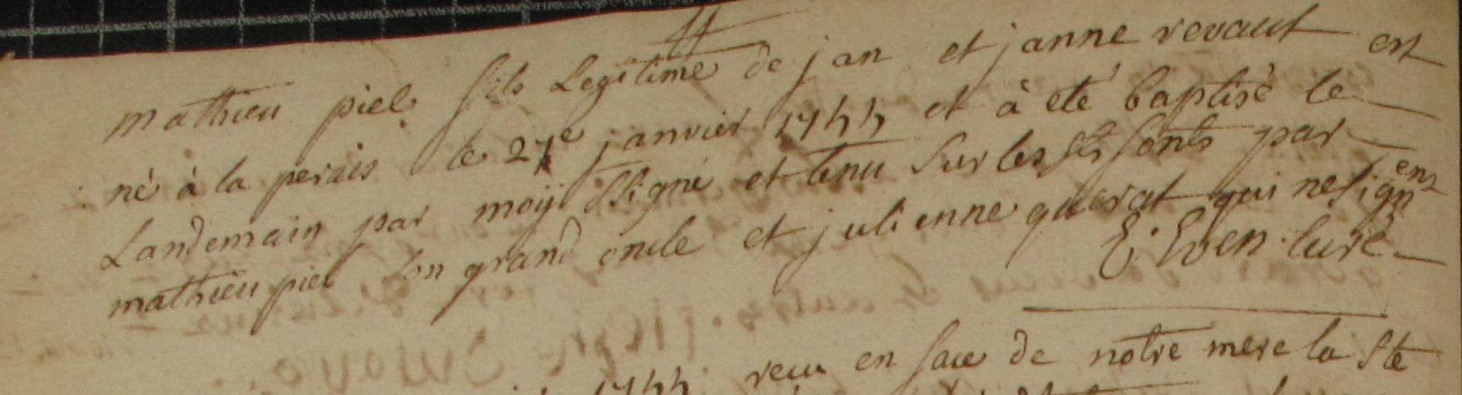 mathieu piel fils Legitime de jan et janne revaut est
né à la perais le 27e janvier 1744 et à eté baptisé le
Landemain par moÿ ssigné et tenu sur les sts fonts par
mathieu piel son grand oncle et julienne querat qui ne signent
E. Even curé
1744 recu en face de notre mere la Ste